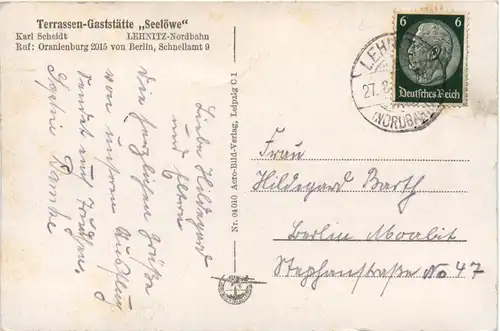 Terrassen-Gaststätte „Seelöwe"
Karl Scheidt LEHNITZ-Nordbahn
Ruf: Oranienburg 2015 von Berlin, Schnellamt 9
Liebe Hildegard
und Eltern
Die herzlichsten Grüße
von unserem Ausflug
sendet euch
Nr. 04040 Aero-Bild-Verlag, Leipzig C 1
6 6
Deutsches Reich
LEHN
27.
(NORDBAHN)
Frau
Hildegard Barth
Berlin Moabit
Stephanstraße No 47